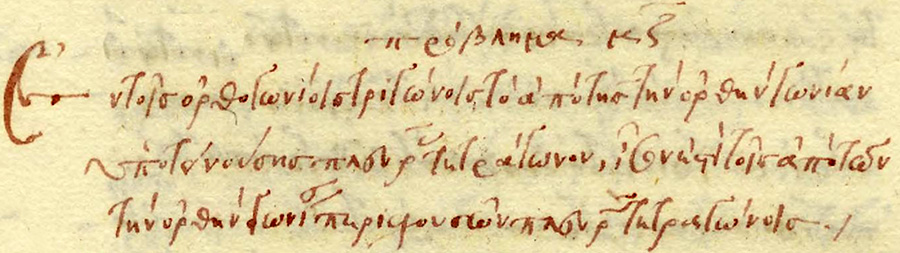 πρόβλημα μζ
Ἐν τοῖς ὀρθογωνίοις τριγώνοις τὸ ἀπὸ τῆς τὴν ὀρθὴν γωνίαν
ὑποτεινούσης πλευρ τετράγωνον, ἴσον ἐστὶ τοῖς ἀπὸ τῶν
τὴν ὀρθὴν γωνι περιεχουσῶν πλευρ τετραγώνοις ./